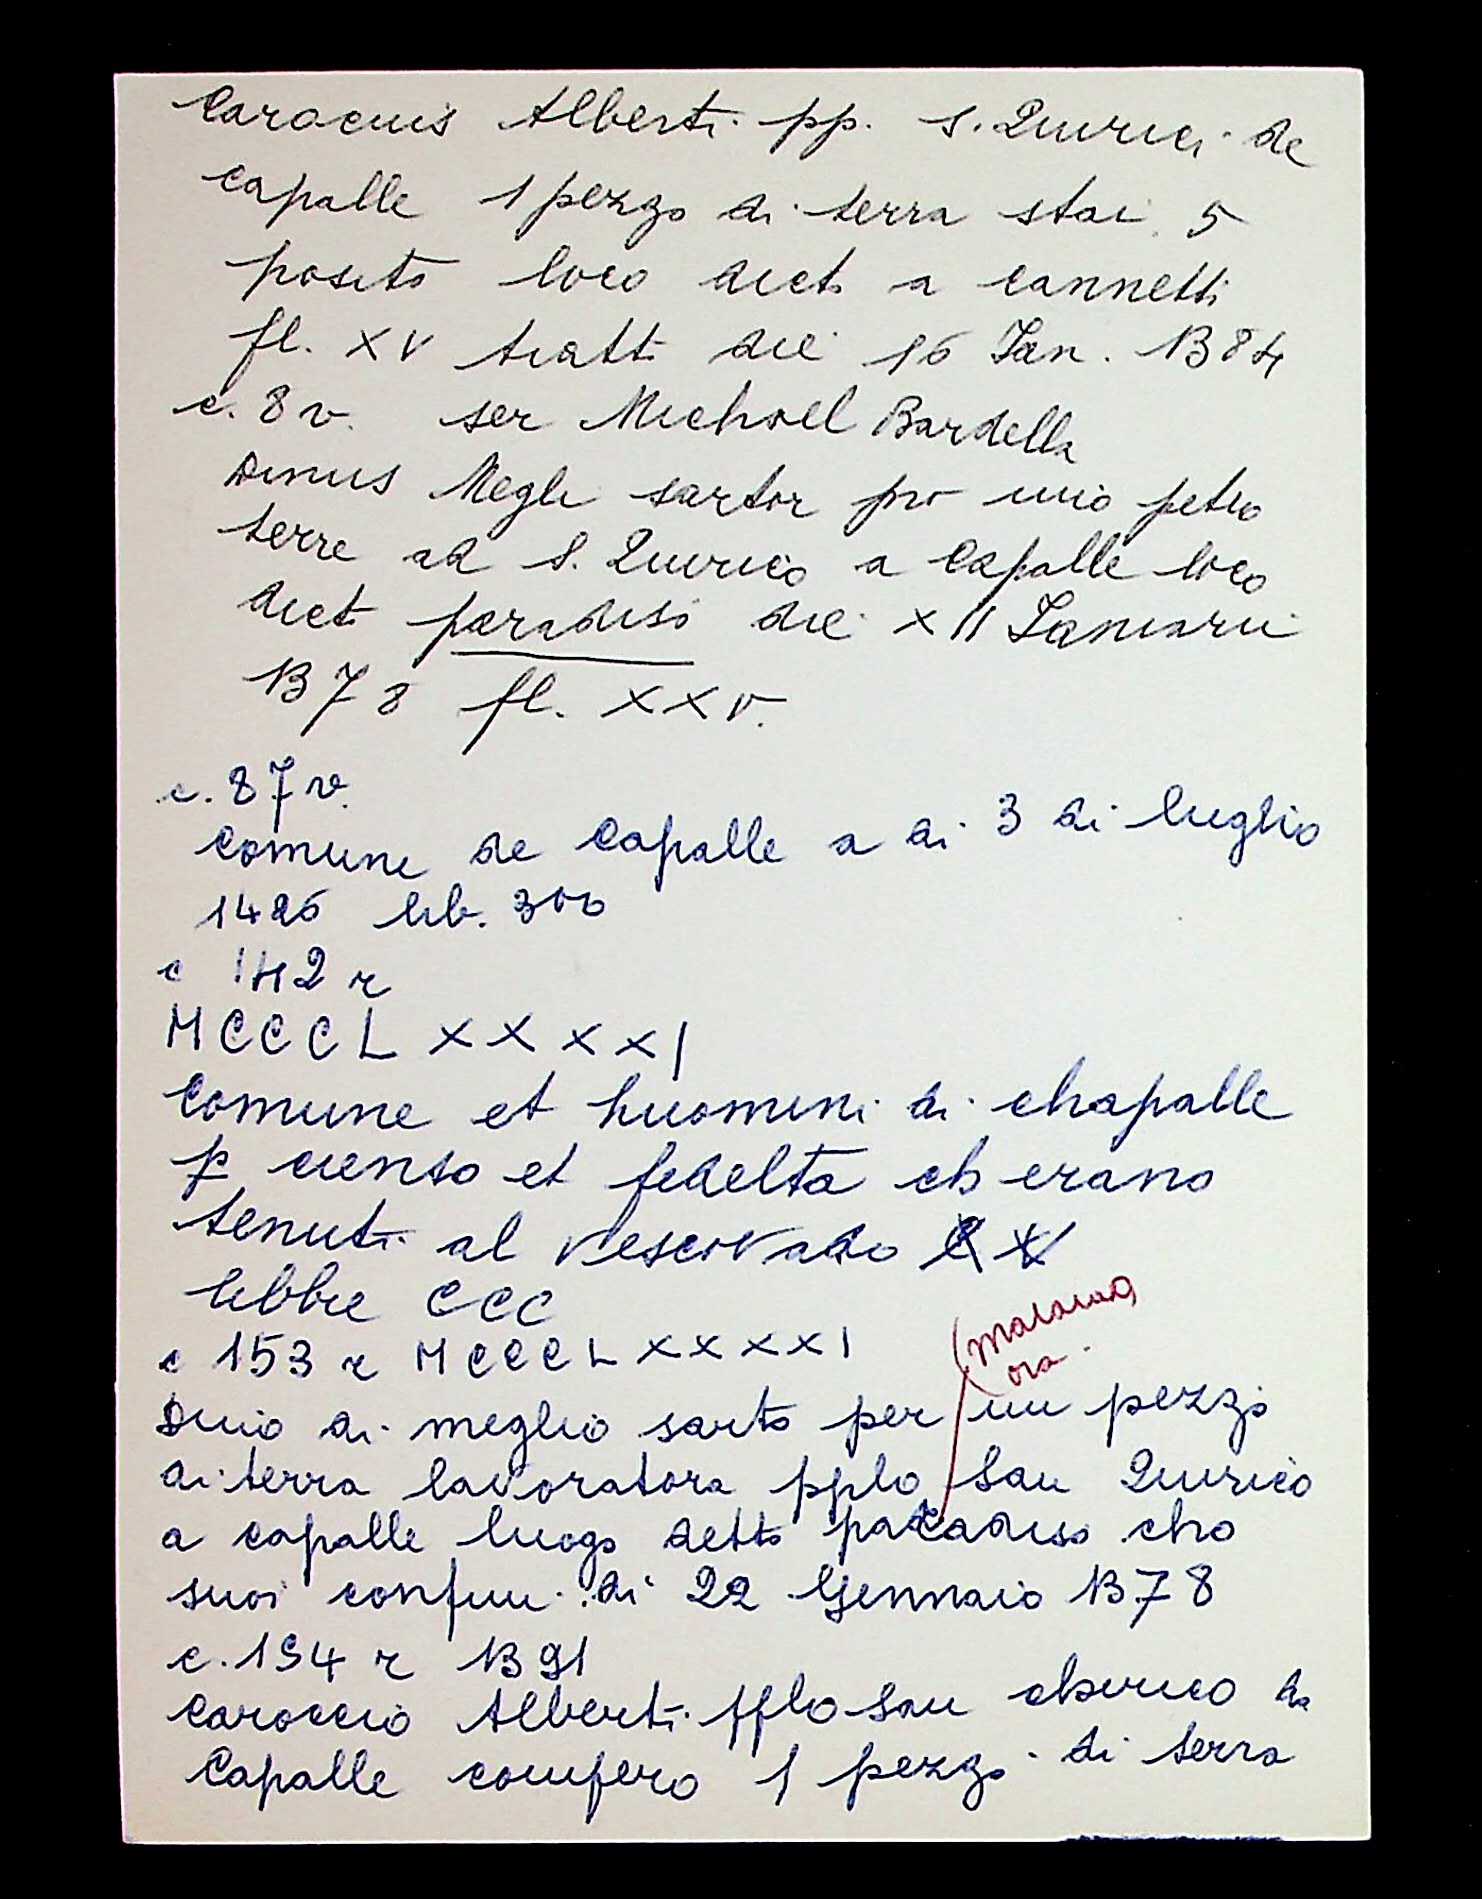 Carocius Alberti pp. S. Quirici de
capalle 1 pezzo di terra stai 5
posito loco dicto a cannetti
fl. XV tratti die 16 Ian. 1384
c. 8 v. ser Michael Bardella
Dinus Megli sartor pro uno petio
terre ad S. Quirico a Capalle loco
dicto paradiso die XII Ianuarii
1378 fl. XXV.
c. 87 v.
Comune de Capalle a di 3 di luglio
1426 lib. 300
c 142 r
MCCCLXXXXI
Comune et huomini di chapalle
p cienso et fedelta ch erano
tenuti al vescovado
libbre CCC
c 153 r MCCCLXXXXI
(macina
ora.
Dino di meglio sarto per un pezzo
di terra lavoratora pplo San Quirico
a capalle luogo detto paradiso cho
suoi confini di 22 Gennaio 1378
c. 154 r 1391
Caroccio Alberti pplo San chirico da
Capalle compero 1 pezzo di terra